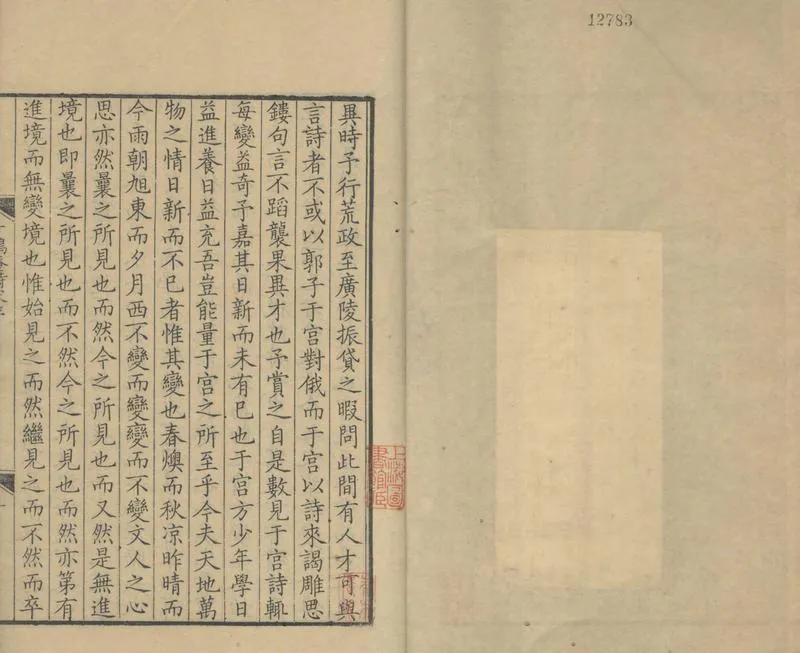 12783
異時予行荒政至廣陵振貸之暇問此間有人才可與
言詩者不或以郭子于宮對俄而于宮以詩來謁雕思
鏤句言不蹈襲果異才也予賞之自是數見于宮詩輒
每變益奇予嘉其日新而未有已也于宮方少年學日
益進養日益充吾豈能量于宮之所至乎今夫天地萬
物之情日新而不已者惟其變也春燠而秋涼昨晴而
今雨朝旭東而夕月西不變而變變而不變文人之心
思亦然曩之所見也而然今之所見也而又然是無進
境也即曩之所見也而不然今之所見也而然亦第有
進境而無變境也惟始見之而然繼見之而不然而卒
上海圖
書館臧